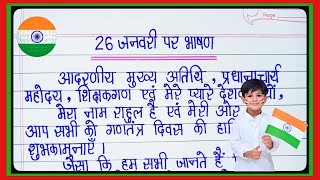 Page
26 जनवरी पर भाषण
आदरणीय मुख्य अतिथि, प्रधानाचार्य
महोदय, शिक्षकगण एवं मेरे प्यारे
मेरा नाम राहुल है एवं मेरी ओर
आप सभी को गणतंत्र दिवस की
शुभकामनाएँ।
जैसा कि हम सभी जानते हैं